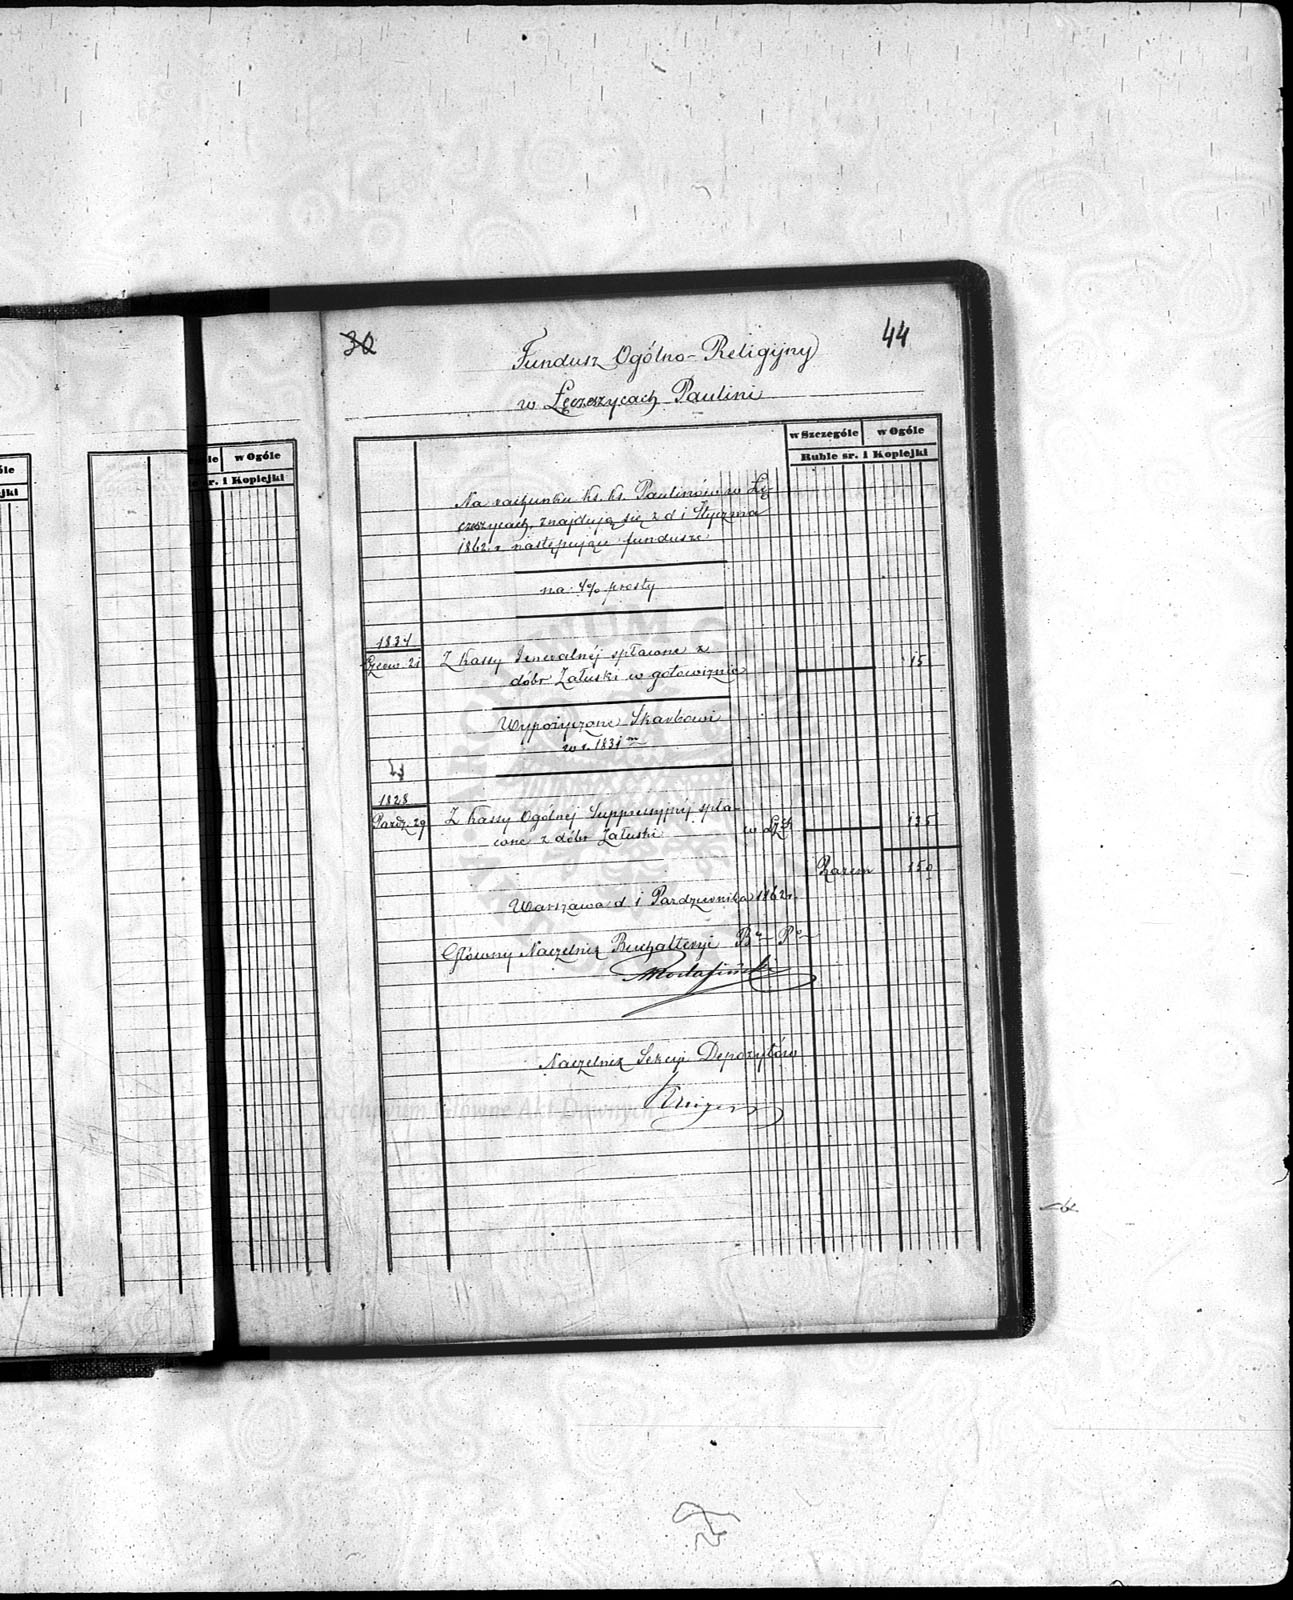 30
44
Fundusz Ogólno-Religijny
w Łęczeszycach Paulini
w Szczególe
w Ogóle
Ruble sr. i Kopiejki
Na rachunku ks. ks. Paulinów w Łę-
czeszycach, znajdują się z d 1 Stycznia
1862. r. następujące fundusze
na 4% prosty
1834
Czerw. 21
Z Kassy Jeneralnéj spłacone z
15
dóbr Załuski w gotowiznie
Wypożyczone Skarbowi
w r. 1831 m
1828
Paźdz. 29
Z Kassy Ogólnej Suppressyjnéj spła-
cone z dóbr Załuski
135
Razem
150
Warszawa d 1 Października 1862 r.
Główny Naczelnik Buchalteryi
Naczelnik Sekcyi Depozytów
Archiwum Główne Akt Dawnych
le
w Ogóle
r. i Kopiejki